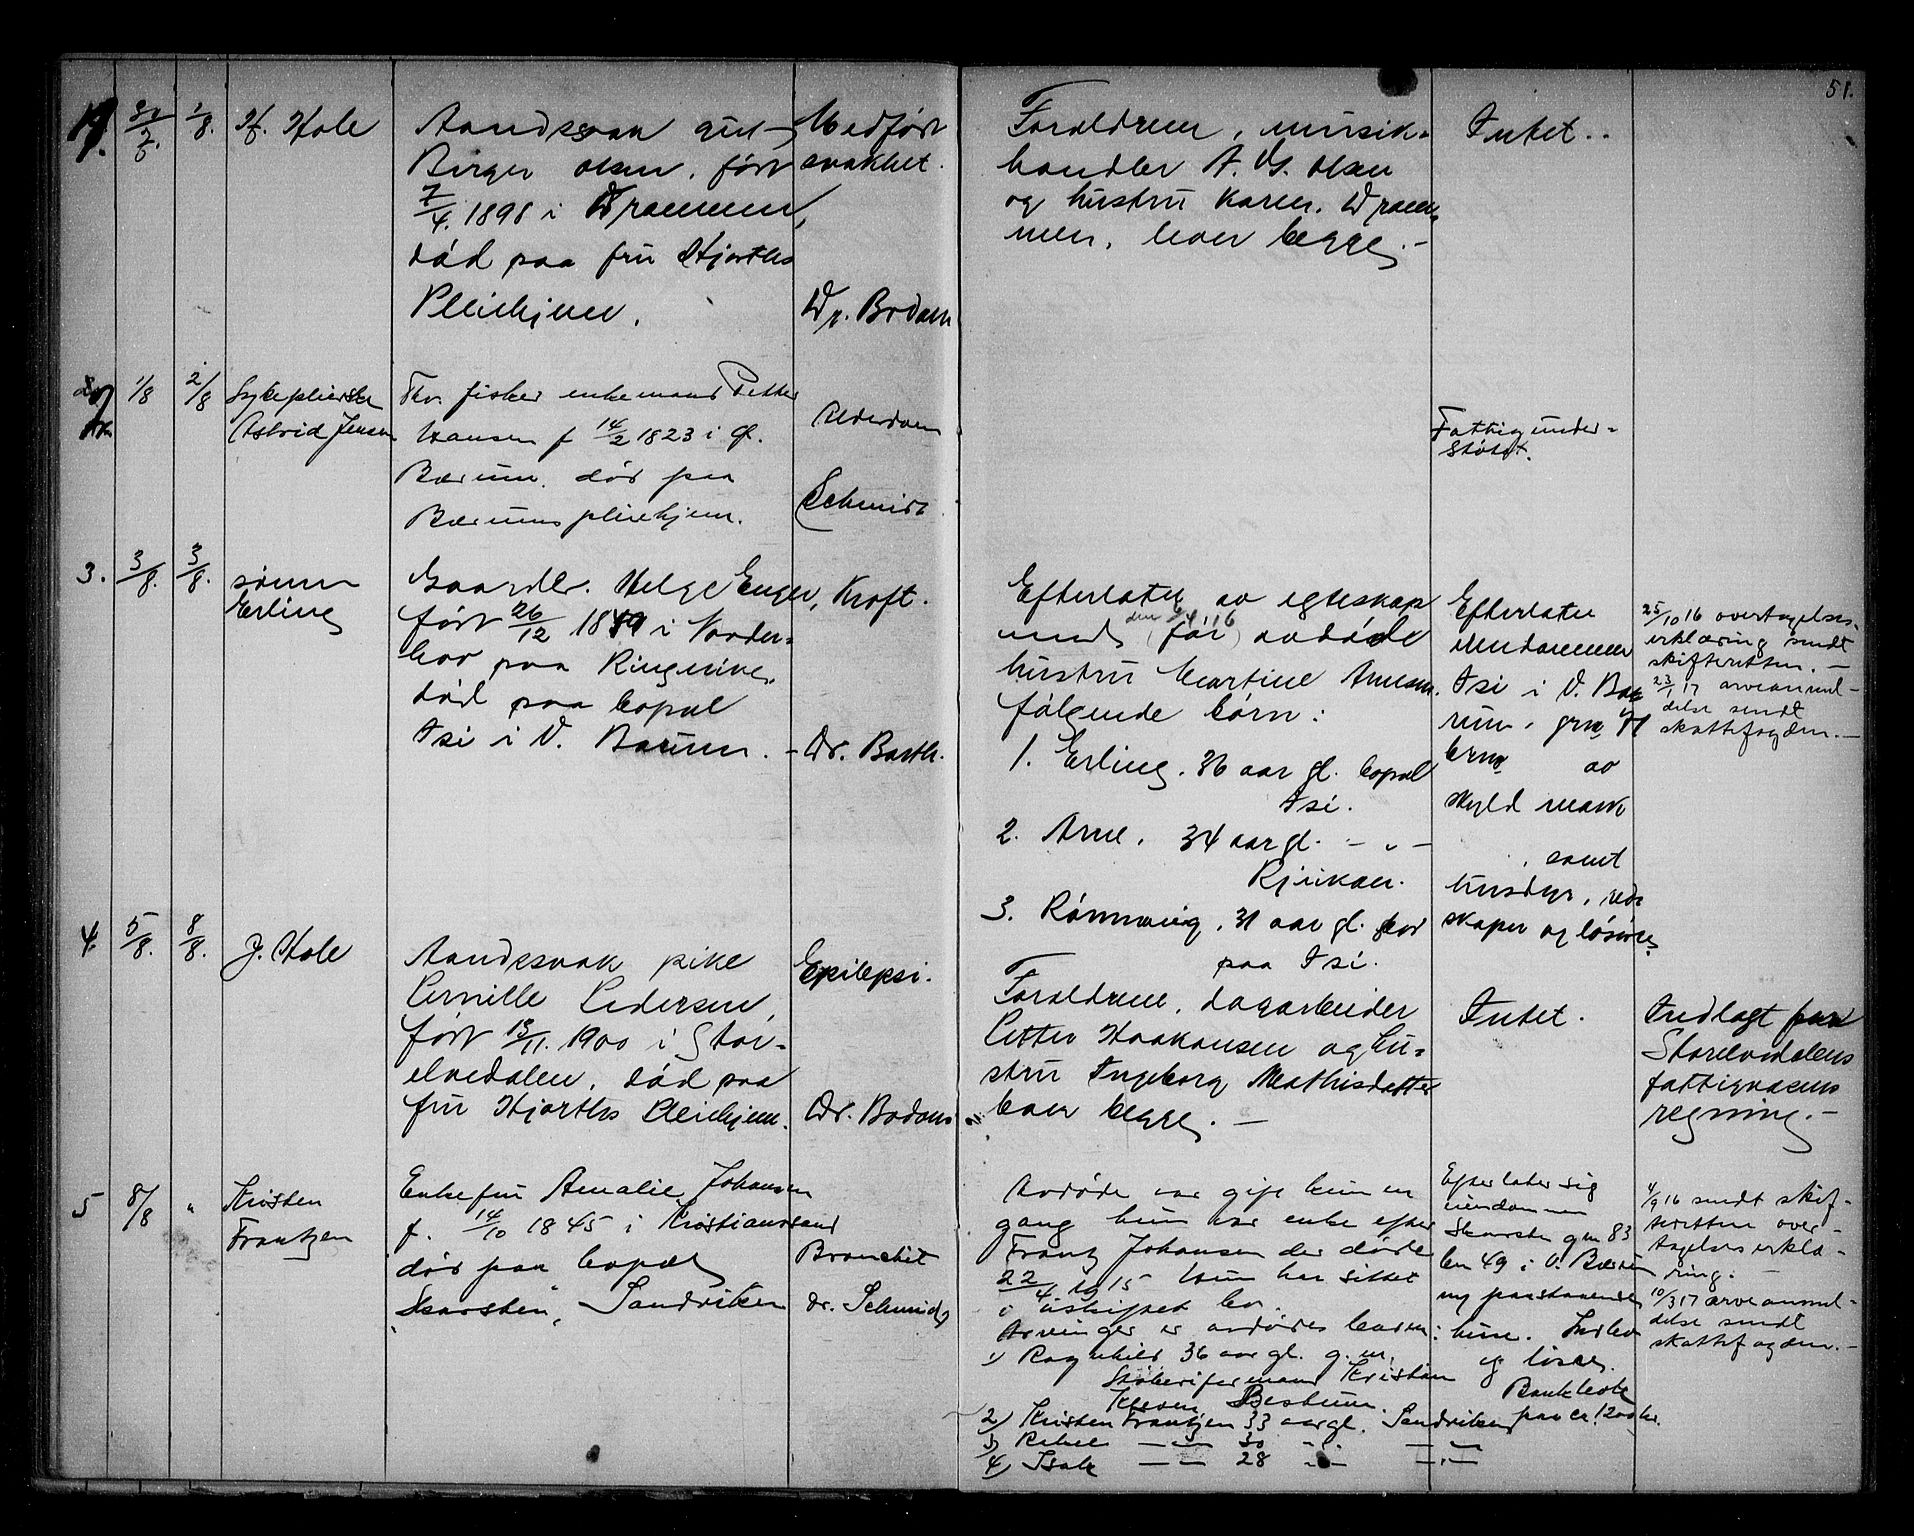 51.
31/7. 1/8. H. Hole
Aandssvak gut -
Birger Olsen, født
7/4. 1898 i Drammen,
død paa fru Hjorths
Pleiehjem.
Medfødt
svakhet.
Dr. Bodom
Forældrene, musik-
handler A. G. Olsen
og hustru Karen, Dram-
men, lever begge. -
Intet.
1/8 2/8 Sykepleierske
Astrid Jensen
Fhv. fisker enkemand Petter
Hansen f 14/2 1823 i Ø.
Bærum, død paa
Bærums pleiehjem.
Alderdom
Schmidt
Fattigunder-
støtet.
3. 3/8. 3/8. sønnen
Erling
Gaardbr. Helge Enger,
født 26/12 18 i Norder-
hov paa Ringerike,
død paa bopæl
Isi i V. Bærum. -
Kræft.
Dr. Barth.
Efterlater av egteskap
med (før den 6/4 16) avdøde
hustru Martine Arnesen
følgende børn:
1. Erling, 36 aar gl. bopæl
Isi.
2. Arne, 34 aar gl. - " -
Rjukan.
3. Rønnaug, 31 aar gl. bor
paa Isi.
Efterlater
eiendommen
Isi i V. Bæ
rum, grn 91
brn av
skyld mark
, samt
husdyr, red-
skaper og løsøre
25/10 16 overtagelses-
erklæring sendt
skifteretten. -
23/1 17 arveanmel-
delse sendt
skattefogden. -
4. 5/8. 8/8. J. Hole
Aandssvak pike
Pernille Pedersen,
født 13/11. 1900 i Stor-
elvedalen, død paa
fru Hjorths Pleiehjem.
Epilepsi.
Dr. Bodom
Forældrene, dagarbeider
Petter Haakonsen og hu-
stru Ingeborg Mathisdatter
lever begge. -
Intet.
Indlagt paa
Storelvedalens
fattigvæsens
regning. -
5 8/8 " Kristen
Frantzen
Enkefru Amalie Johansen
f. 14/10 1845 i Kristianssand
død paa bopæl
"Skarsten", Sandviken
Bronchit
Dr. Schmidt
Avdøde var gift kun en
gang hun var enke efter
Frantz Johansen der døde
22/4 1915 Hun har sittet
i uskiftet bo.
Arvinger er avdødes barn:
1) Ragnhild 36 aar gl. g. m.
Støberiformand Kristian
Kleven Bestum.
2) Kristen Frantzen 33 aar gl. Sandviken
3) Rebel - " - 30 - " - - " -
4) Isak - " - 28 - " - - " -
Efterlater sig
eiendommen
Skarsten g nr 83
bn 49 i V. Bærum
m paastaaende
huse. Indbo
og løsøre.
Bankbok
paa ca. 1200 kr.
4/9 16 sendt skif-
teretten over-
tagelseserklæ-
ring. -
10/3 17 arveanmel-
delse sendt
skattefogden. -